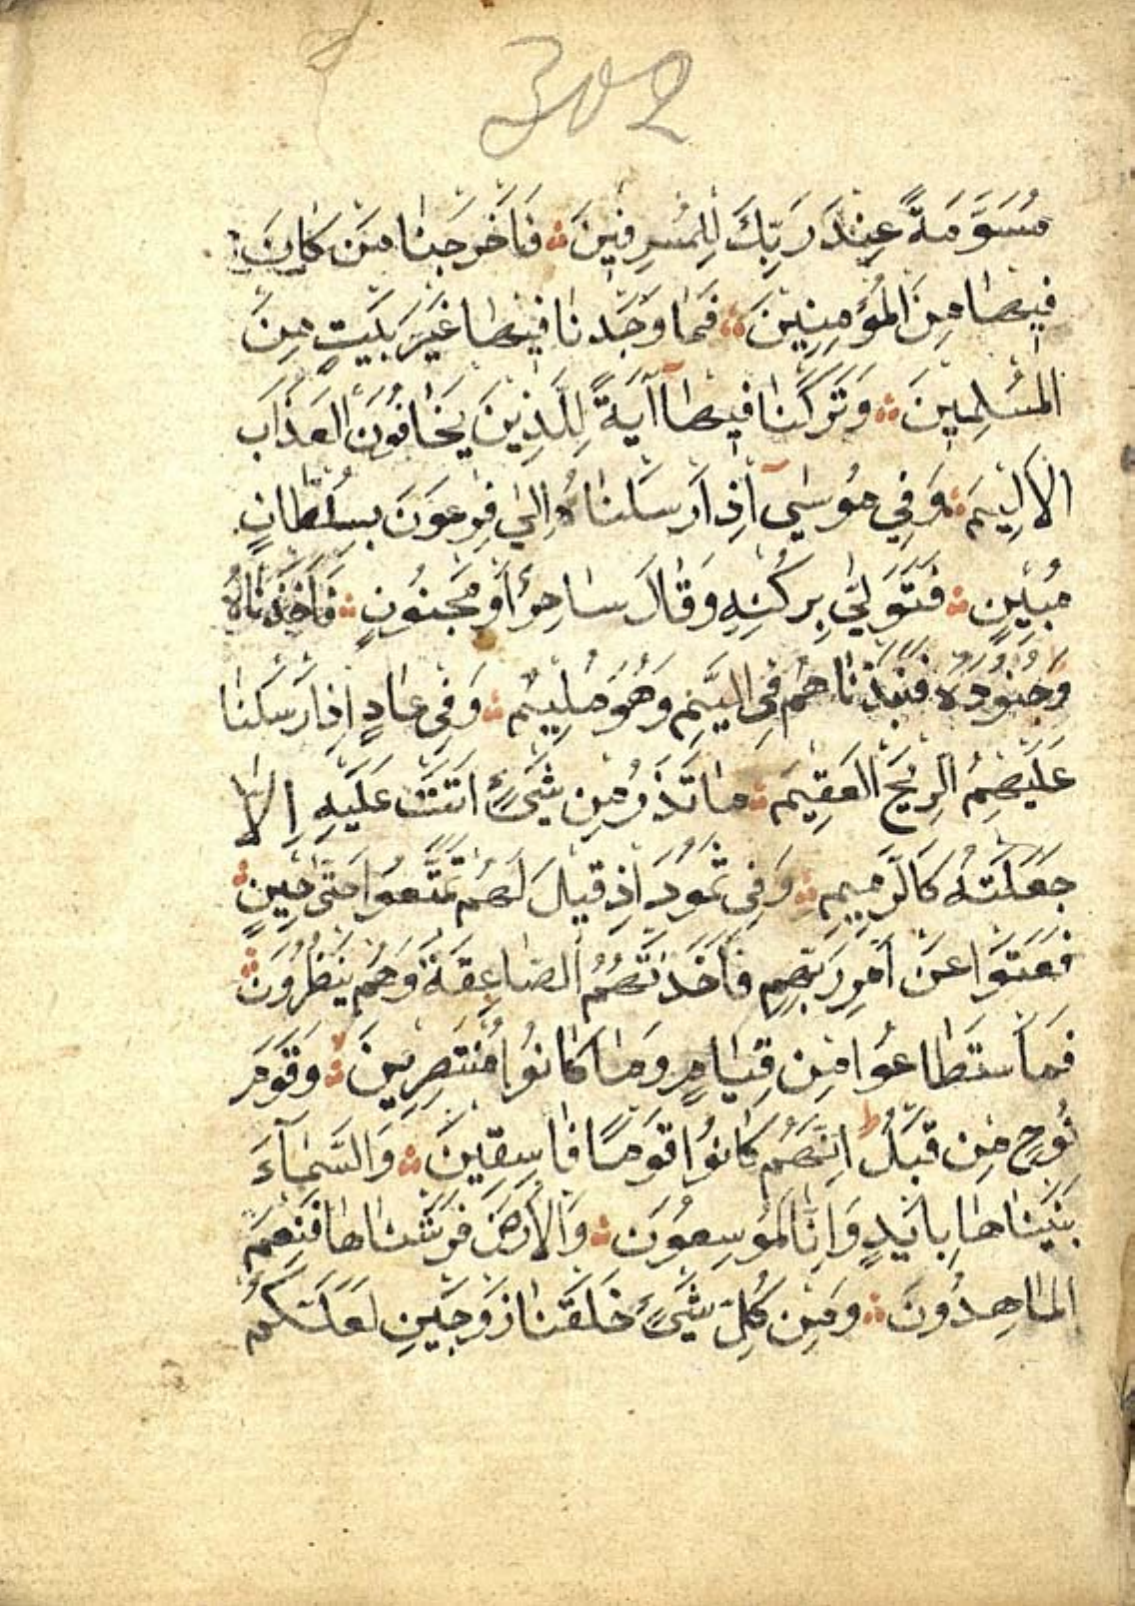 302
مُسَوَّمَةً عِنْدَ رَبِّكَ لِلْمُسْرِفِينَ ۞ فَاَخْرَجْنَا مَنْ كَانَ
فِيهَا مِنَ الْمُؤْمِنِينَ ۞ فَمَا وَجَدْنَا فِيهَا غَيْرَ بَيْتٍ مِنَ
الْمُسْلِمِينَ ۞ وَتَرَكْنَا فِيهَآ آيَةً لِلَّذِينَ يَخَافُونَ الْعَذَابَ
الْاَلِيمَ ۞ وَفِي مُوسٰىٓ اِذْ اَرْسَلْنَاهُ اِلٰى فِرْعَوْنَ بِسُلْطَانٍ
مُبِينٍ ۞ فَتَوَلّٰى بِرُكْنِهِ وَقَالَ سَاحِرٌ اَوْ مَجْنُونٌ ۞ فَاَخَذْنَاهُ
وَجُنُودَهُ فَنَبَذْنَاهُمْ فِي الْيَمِّ وَهُوَ مُلِيمٌ ۞ وَفِي عَادٍ اِذْ اَرْسَلْنَا
عَلَيْهِمُ الرِّيحَ الْعَقِيمَ ۞ مَا تَذَرُ مِنْ شَيْءٍ اَتَتْ عَلَيْهِ اِلَّا
جَعَلَتْهُ كَالرَّمِيمِ ۞ وَفِي ثَمُودَ اِذْ قِيلَ لَهُمْ تَمَتَّعُوا حَتّٰى حِينٍ ۞
فَعَتَوْا عَنْ اَمْرِ رَبِّهِمْ فَاَخَذَتْهُمُ الصَّاعِقَةُ وَهُمْ يَنْظُرُونَ ۞
فَمَا اسْتَطَاعُوا مِنْ قِيَامٍ وَمَا كَانُوا مُنْتَصِرِينَ ۞ وَقَوْمَ
نُوحٍ مِنْ قَبْلُ ط اِنَّهُمْ كَانُوا قَوْمًا فَاسِقِينَ ۞ وَالسَّمَآءَ
بَنَيْنَاهَا بِاَيْدٍ وَاِنَّا لَمُوسِعُونَ ۞ وَالْاَرْضَ فَرَشْنَاهَا فَنِعْمَ
الْمَاهِدُونَ ۞ وَمِنْ كُلِّ شَيْءٍ خَلَقْنَا زَوْجَيْنِ لَعَلَّكُمْ